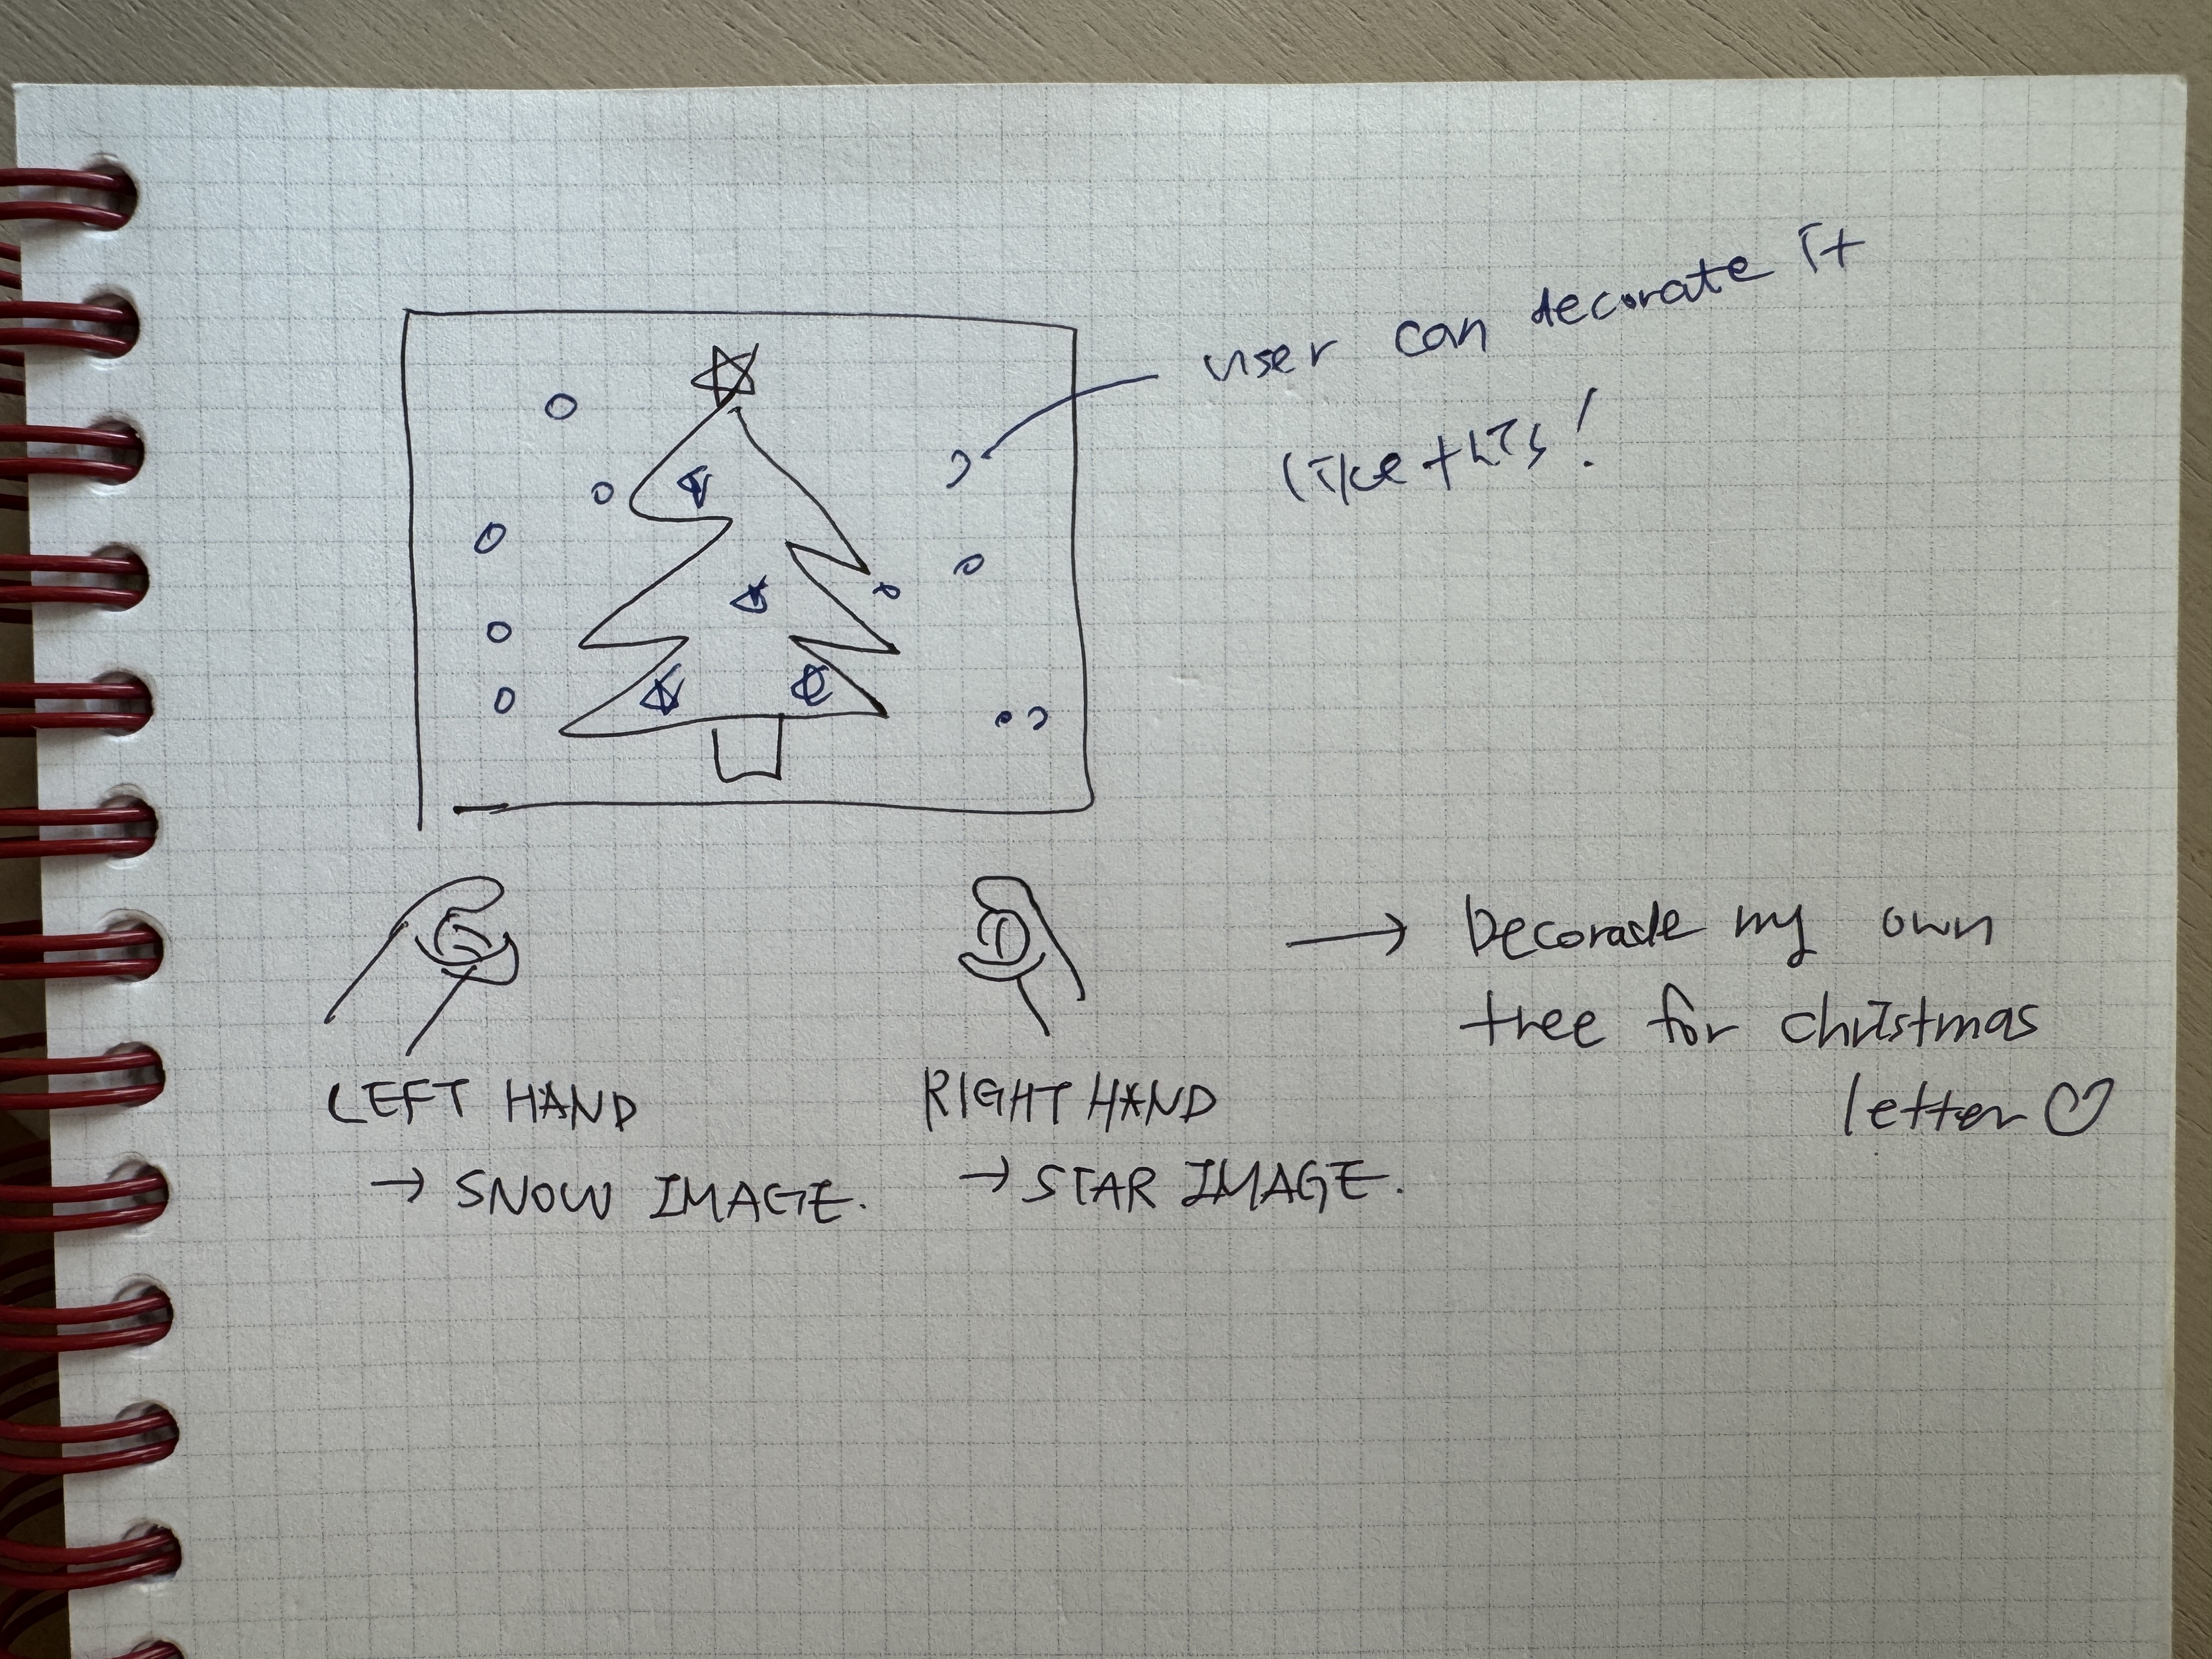 user can decorate it
like this!
LEFT HAND
→ SNOW IMAGE.
RIGHT HAND
→ STAR IMAGE.
→ Decorade my own
tree for christmas
letter ♡